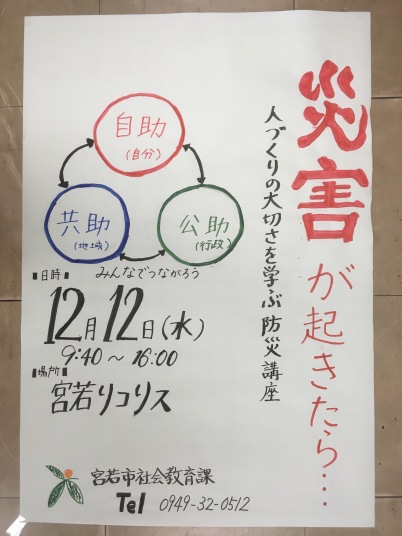 災害が起きたら…
人づくりの大切さを学ぶ防災講座
自助
(自分)
共助
(地域)
公助
(行政)
みんなでつながろう
■日時■
12月12日(水)
9:40～16:00
■場所■
宮若リコリス
宮若市社会教育課
Tel 0949-32-0512